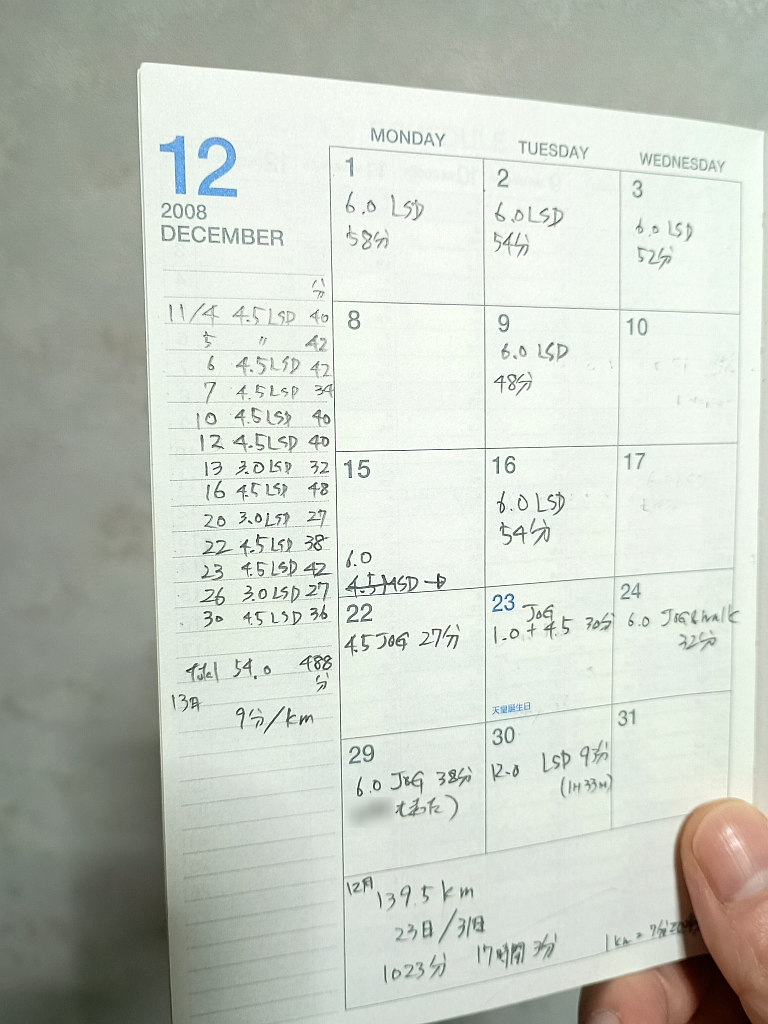 12
2008
DECEMBER
分
11/4 4.5LSD 40
5 〃 42
6 4.5LSD 42
7 4.5LSD 34
10 4.5LSD 40
12 4.5LSD 40
13 3.0LSD 32
16 4.5LSD 48
20 3.0LSD 27
22 4.5LSD 38
23 4.5LSD 42
26 3.0LSD 27
30 4.5LSD 36
total 54.0 488
分
13日
9分/km
MONDAY TUESDAY WEDNESDAY
1
6.0 LSD
58分
2
6.0LSD
54分
3
6.0 LSD
52分
8
9
6.0 LSD
48分
10
15
6.0
16
6.0 LSD
54分
17
22
4.5 JOG 27分
23
JOG
1.0+4.5 30分
天皇誕生日
24
6.0 JOG&walk
32分
29
6.0 JOG 38分
30
12.0 LSD 93分
(1H33M)
31
12月
139.5km
23日/31日
1023分 17時間3分